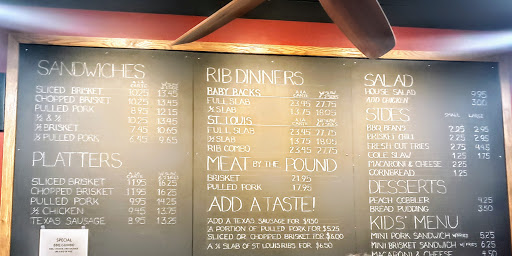 SANDWICHES
SLICED BRISKET 10.25 13.45
CHOPPED BRISKET 10.25 13.45
PULLED PORK 8.95 12.15
½ & ½ 10.25 13.45
½ BRISKET 7.45 10.65
½ PULLED PORK 6.45 9.65
PLATTERS
SLICED BRISKET 11.95 16.25
CHOPPED BRISKET 11.95 16.25
PULLED PORK 9.95 14.25
½ CHICKEN 9.45 13.75
TEXAS SAUSAGE 8.95 13.25
SPECIAL
RIB DINNERS
BABY BACKS
FULL SLAB 23.45 27.75
½ SLAB 13.75 18.05
ST. LOUIS
FULL SLAB 23.45 27.75
½ SLAB 13.75 18.05
RIB COMBO 23.45 27.75
MEAT BY THE POUND
BRISKET 21.95
PULLED PORK 17.95
ADD A TASTE!
ADD A TEXAS SAUSAGE FOR
PORTION OF PULLED PORK FOR $5.25
SLICED OR CHOPPED BRISKET FOR $6.00
A ¼ SLAB OF ST LOUIS RIBS FOR $6.50
SALAD
HOUSE SALAD 9.25
ADD CHICKEN
SIDES
BBQ BEANS 2.25 2.95
BRISKET CHILI 2.25 2.95
FRESH CUT FRIES 2.75 4.45
COLE SLAW 1.25 1.75
MACARONI & CHEESE 2.25 2.95
CORNBREAD 1.25
DESSERTS
PEACH COBBLER 4.25
BREAD PUDDING 3.50
KIDS' MENU
MINI PORK SANDWICH
MINI BRISKET SANDWICH
MACARONI & CHEESE